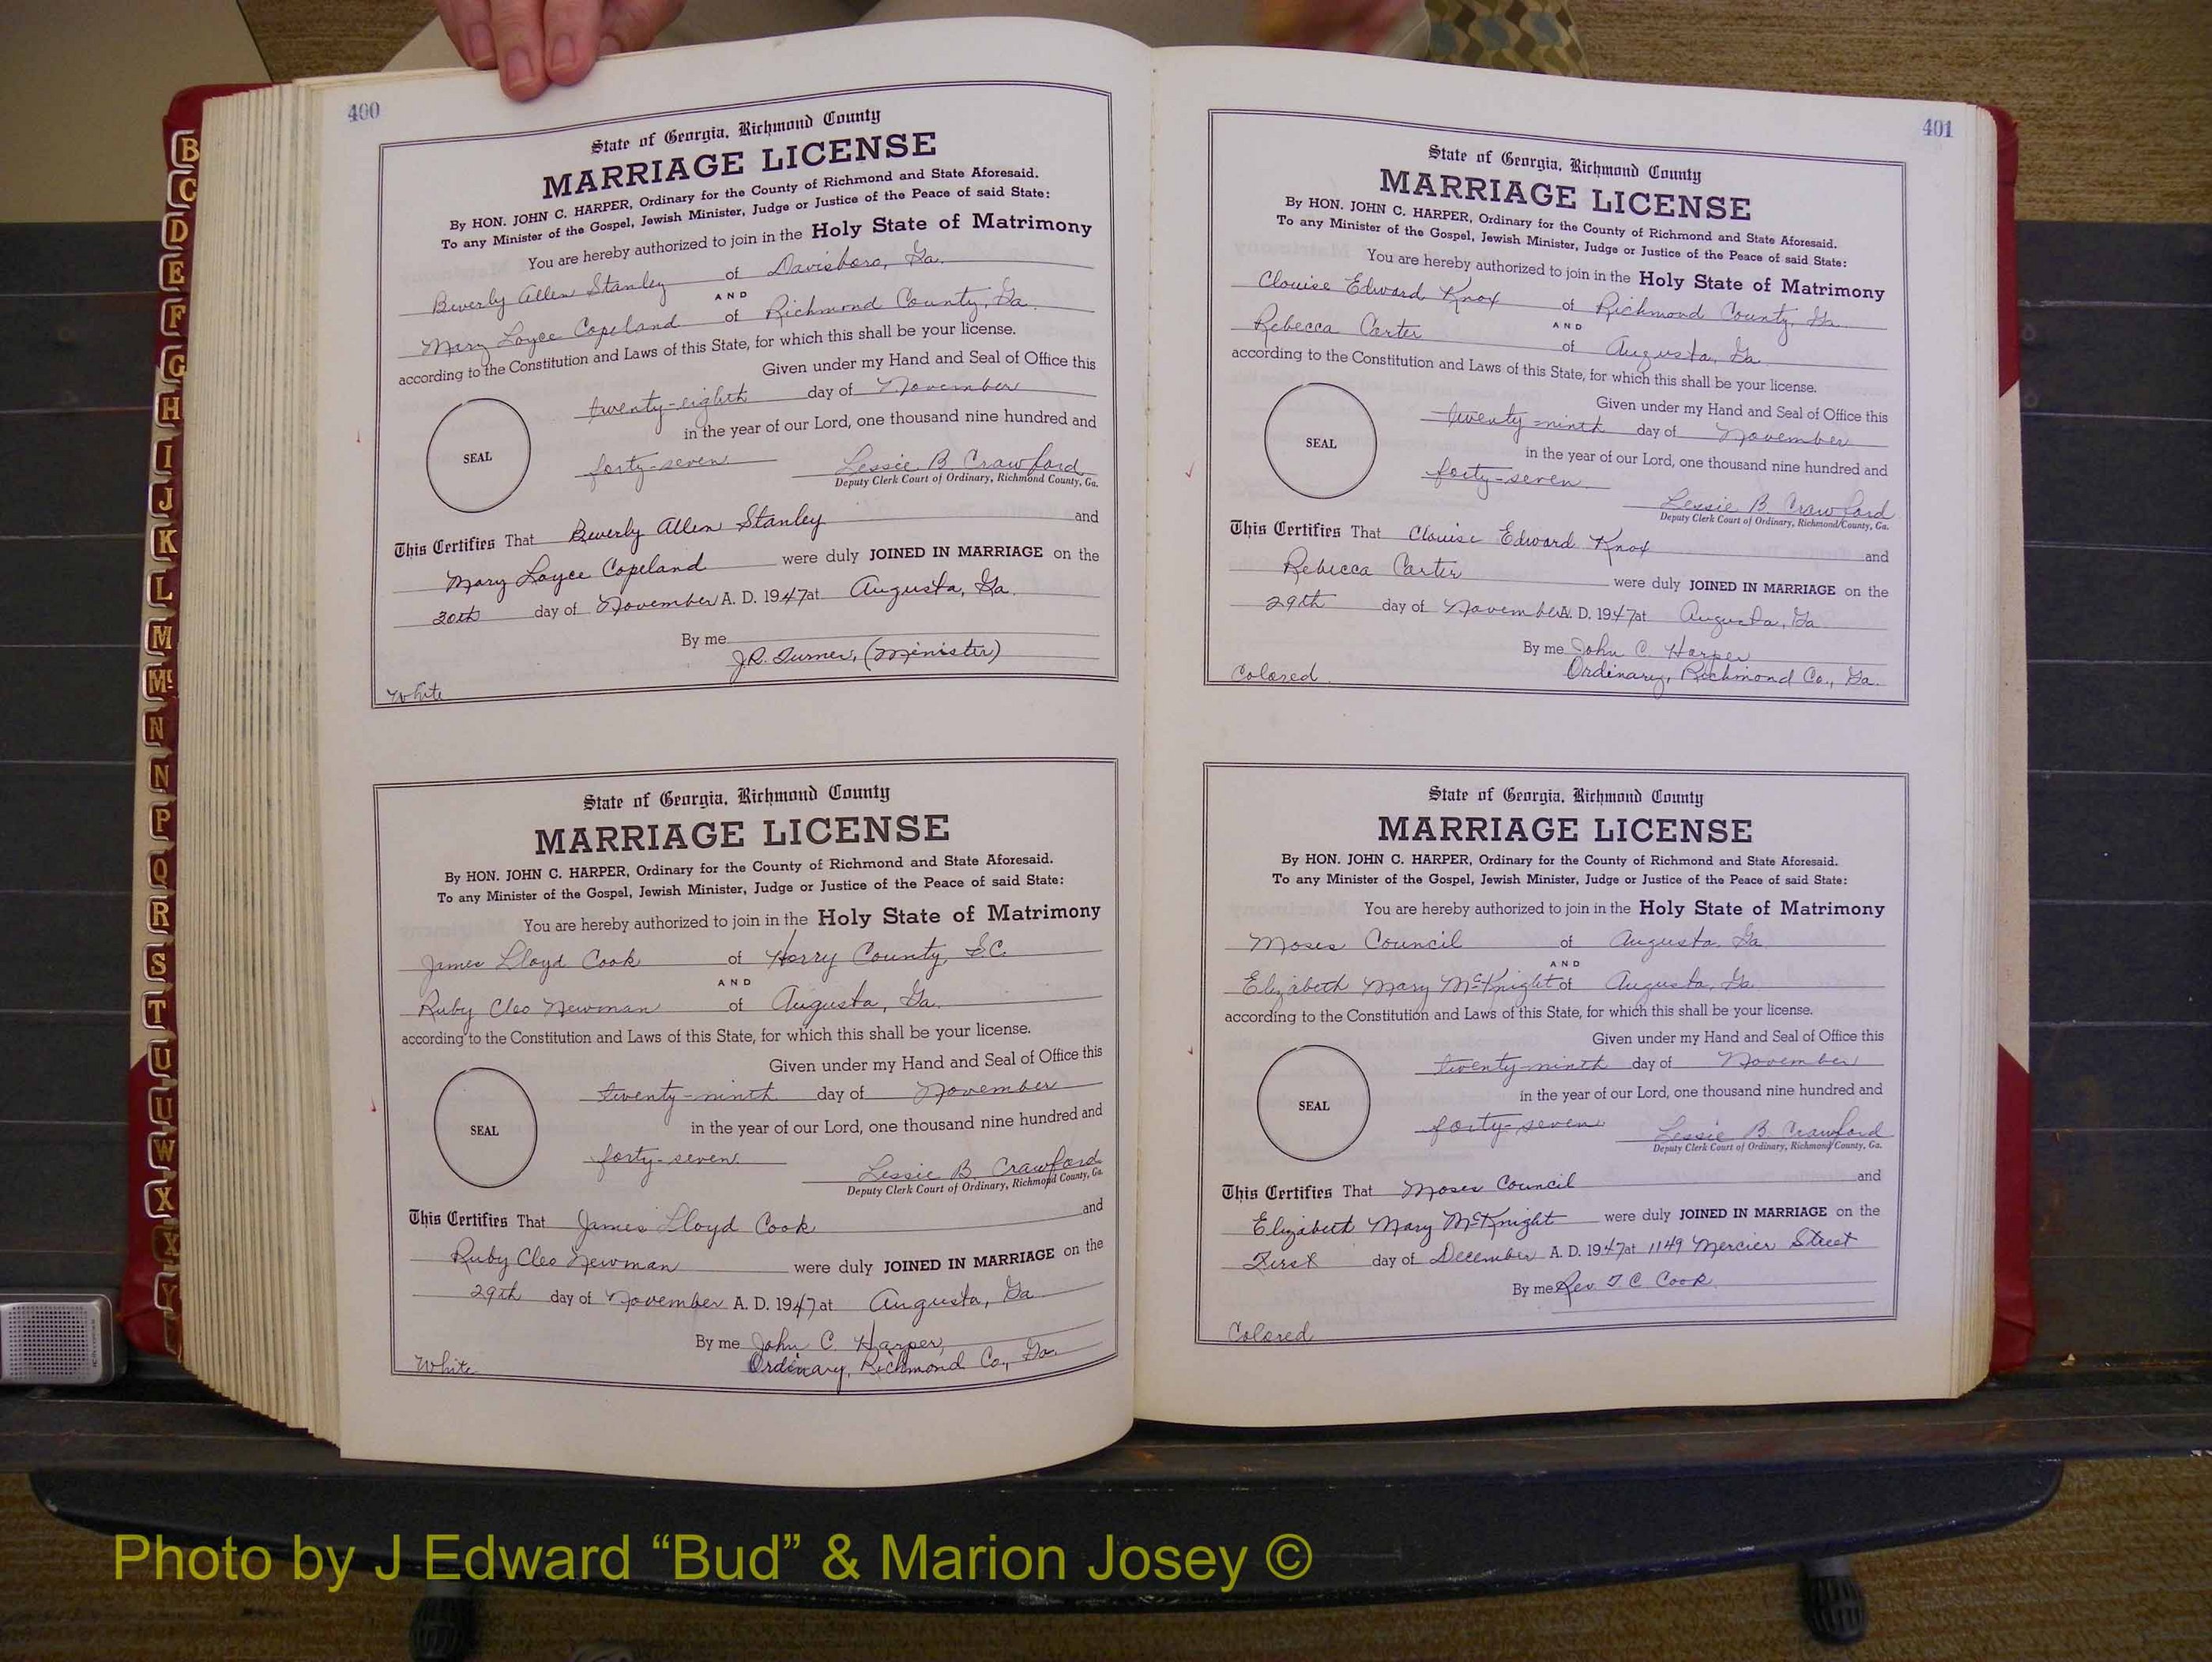 400
State of Georgia, Richmond County
MARRIAGE LICENSE
By HON. JOHN C. HARPER, Ordinary for the County of Richmond and State Aforesaid.
To any Minister of the Gospel, Jewish Minister, Judge or Justice of the Peace of said State:
You are hereby authorized to join in the Holy State of Matrimony
Beverly Allen Stanley of Davisboro, Ga.
AND
Mary Loyce Copeland of Richmond County, Ga.
according to the Constitution and Laws of this State, for which this shall be your license.
Given under my Hand and Seal of Office this
twenty-eighth day of November
in the year of our Lord, one thousand nine hundred and
SEAL
forty-seven Lessie B. Crawford
Deputy Clerk Court of Ordinary, Richmond County, Ga.
This Certifies That Beverly Allen Stanley and
Mary Loyce Copeland were duly JOINED IN MARRIAGE on the
30th day of November A. D. 1947 at Augusta, Ga.
By me
J.R. Turner, (Minister)
White
State of Georgia, Richmond County
MARRIAGE LICENSE
By HON. JOHN C. HARPER, Ordinary for the County of Richmond and State Aforesaid.
To any Minister of the Gospel, Jewish Minister, Judge or Justice of the Peace of said State:
You are hereby authorized to join in the Holy State of Matrimony
James Lloyd Cook of Horry County, S.C.
AND
Ruby Cleo Newman of Augusta, Ga.
according to the Constitution and Laws of this State, for which this shall be your license.
Given under my Hand and Seal of Office this
twenty-ninth day of November
in the year of our Lord, one thousand nine hundred and
SEAL
forty-seven Lessie B. Crawford
Deputy Clerk Court of Ordinary, Richmond County, Ga.
This Certifies That James Lloyd Cook and
Ruby Cleo Newman were duly JOINED IN MARRIAGE on the
29th day of November A. D. 1947 at Augusta, Ga
By me John C. Harper,
Ordinary, Richmond Co., Ga.
White
401
State of Georgia, Richmond County
MARRIAGE LICENSE
By HON. JOHN C. HARPER, Ordinary for the County of Richmond and State Aforesaid.
To any Minister of the Gospel, Jewish Minister, Judge or Justice of the Peace of said State:
You are hereby authorized to join in the Holy State of Matrimony
Clouise Edward Knox of Richmond County, Ga.
AND
Rebecca Carter of Augusta, Ga.
according to the Constitution and Laws of this State, for which this shall be your license.
Given under my Hand and Seal of Office this
twenty-ninth day of November
in the year of our Lord, one thousand nine hundred and
SEAL
forty-seven Lessie B. Crawford
Deputy Clerk Court of Ordinary, Richmond County, Ga.
This Certifies That Clouise Edward Knox and
Rebecca Carter were duly JOINED IN MARRIAGE on the
29th day of November A. D. 1947 at Augusta, Ga
By me John C. Harper
Ordinary, Richmond Co., Ga.
Colored
State of Georgia, Richmond County
MARRIAGE LICENSE
By HON. JOHN C. HARPER, Ordinary for the County of Richmond and State Aforesaid.
To any Minister of the Gospel, Jewish Minister, Judge or Justice of the Peace of said State:
You are hereby authorized to join in the Holy State of Matrimony
Moses Council of Augusta, Ga.
AND
Elizabeth Mary McKnight of Augusta, Ga
according to the Constitution and Laws of this State, for which this shall be your license.
Given under my Hand and Seal of Office this
twenty-ninth day of November
in the year of our Lord, one thousand nine hundred and
SEAL
forty-seven Lessie B. Crawford
Deputy Clerk Court of Ordinary, Richmond County, Ga.
This Certifies That Moses Council and
Elizabeth Mary McKnight were duly JOINED IN MARRIAGE on the
First day of December A. D. 1947 at 1149 Mercier Street
By me Rev T. C. Cook
Colored
B
C
D
E
F
G
H
I
J
K
L
M
Mc
N
N
P
Q
R
S
T
U
U
W
X
X
Y
Photo by J Edward “Bud” & Marion Josey ©